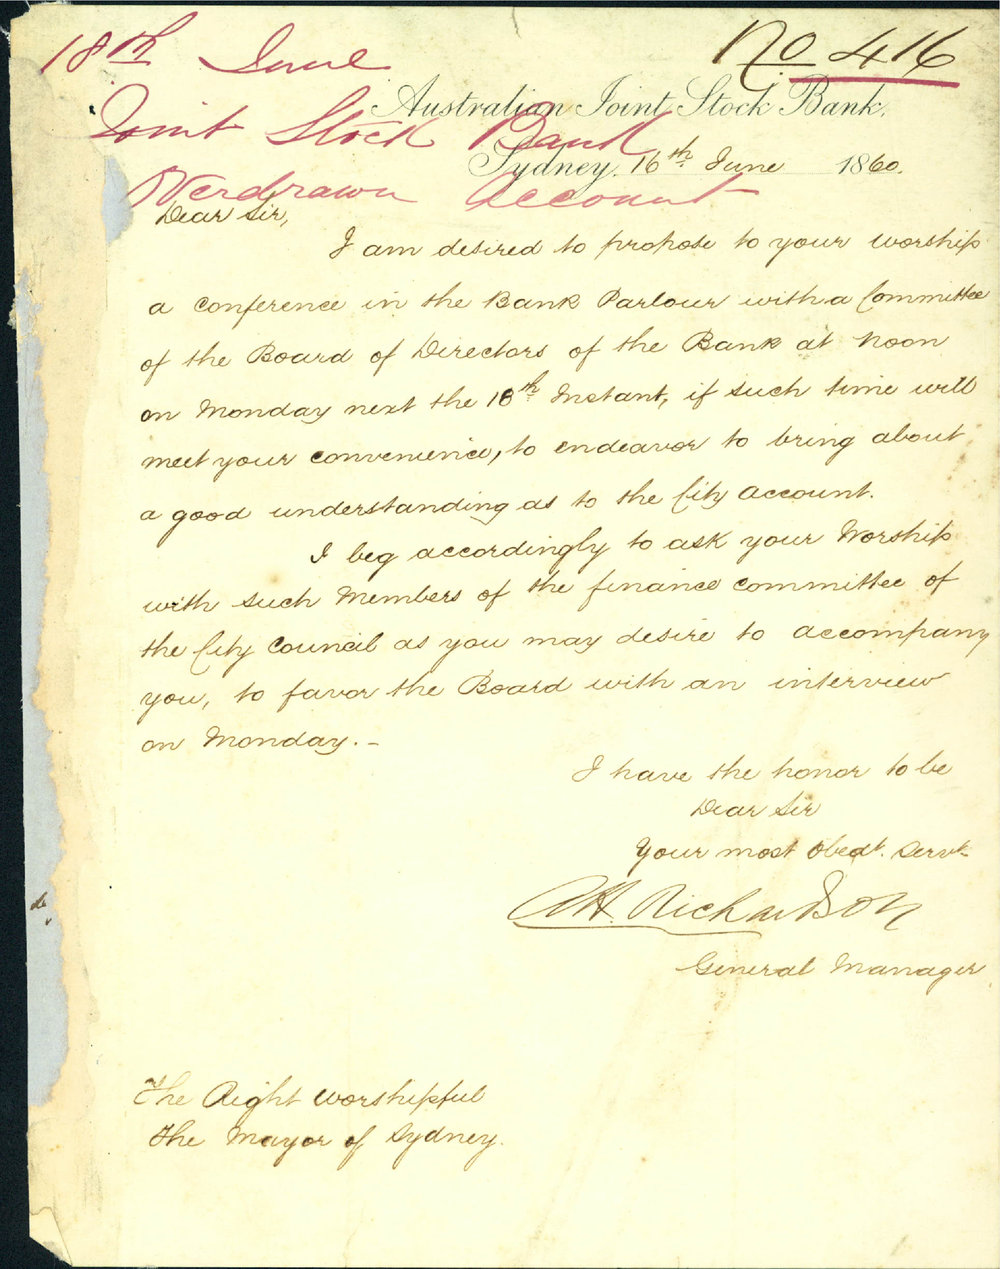 18th June
No 416
Australian Joint Stock Bank.
Joint Stock Bank
Sydney, 16th June 1860.
Overdrawn Account
Dear Sir,
I am desired to propose to your worship
a conference in the Bank Parlour with a Committee
of the Board of Directors of the Bank at Noon
on Monday next the 18th Instant, if such time will
meet your convenience, to endeavor to bring about
a good understanding as to the City Account.
I beg accordingly to ask your Worship
with such Members of the finance committee of
the City Council as you may desire to accompany
you, to favor the Board with an interview
on Monday. -
I have the honor to be
Dear Sir
Your most Obedt. Servt
H. Richardson
General Manager
The Right Worshipful
The Mayor of Sydney.